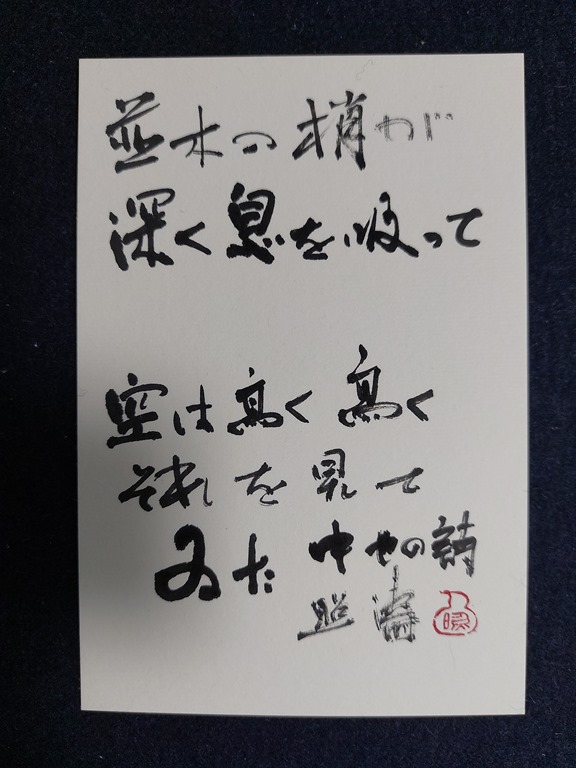 並木の梢が
深く息を吸って
空は高く高く
それを見て
ゐた 中也の詩
照濤